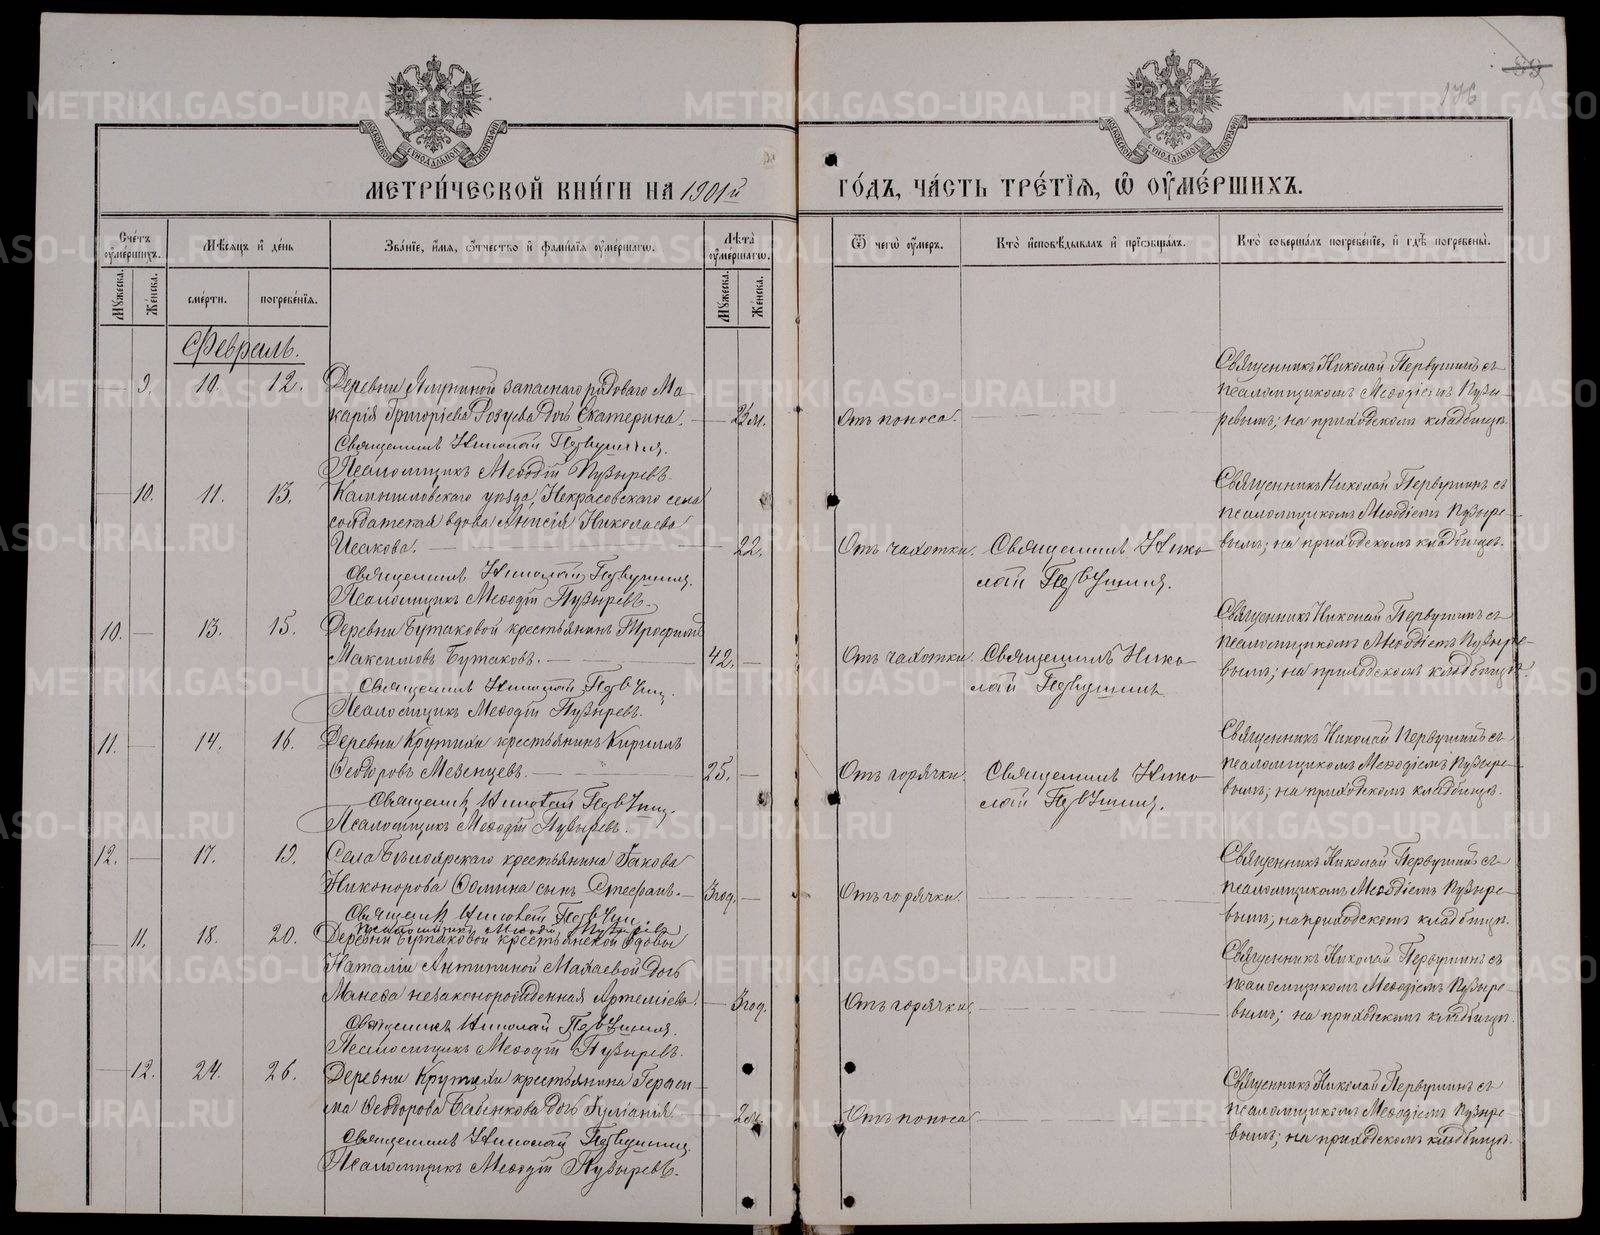 176
МЕТРИ́ЧЕСКОЙ КНИ́ГИ НА 1901й
ГО́ДЪ, ЧА́СТЬ ТРЕ́ТІѦ, Ѡ ОУМЕ́РШИХЪ.
МОСКОВСКОЙ СѴНОДАЛЬНОЙ ТИПОГРАФІИ
МОСКОВСКОЙ СѴНОДАЛЬНОЙ ТИПОГРАФІИ
Счетъ оумершихъ.
Мѣсяцъ и день
Званіе, имя, отчество и фамилія оумершагω.
Лѣта оумершагω.
Ѿ чегω оумеръ.
Кто исповѣдывалъ и пріωбщалъ.
Кто совершалъ погребеніе, и гдѣ погребены.
Мужеска.
Женска.
смерти.
погребенія.
Мужеска.
Женска.
Февраль.
9. 10. 12.
Деревни запаснаго рядоваго Ма-
карія Григоріева дочь Екатерина. 2½м.
Священникъ Николай Первушинъ.
Псаломщикъ Меѳодій Пузыревъ.
Отъ поноса.
Священникъ Николай Первушинъ съ
псаломщикомъ Меѳодіемъ Пузы-
ревымъ; на приходскомъ кладбищѣ.
10. 11. 13.
Камышловскаго уѣзда, Некрасовскаго села
солдатская вдова Николаева
Исакова. 22.
Священникъ Николай Первушинъ.
Псаломщикъ Меѳодій Пузыревъ.
Отъ чахотки.
Священникъ Нико-
лай Первушинъ.
Священникъ Николай Первушинъ съ
псаломщикомъ Меѳодіемъ Пузыре-
вымъ; на приходскомъ кладбищѣ.
10. 13. 15.
Деревни Бутаковой крестьянинъ Трофимъ
Максимовъ Бутаковъ. 42.
Священникъ Николай Первушинъ.
Псаломщикъ Меѳодій Пузыревъ.
Отъ чахотки.
Священникъ Нико-
лай Первушинъ
Священникъ Николай Первушинъ съ
псаломщикомъ Меѳодіемъ Пузыре-
вымъ; на приходскомъ кладбищѣ.
11. 14. 16.
Деревни Крутихи крестьянинъ Кириллъ
Ѳедоровъ Мезенцевъ. 25.
Священникъ Николай Первушинъ.
Псаломщикъ Меѳодій Пузыревъ.
Отъ горячки.
Священникъ Нико-
лай Первушинъ.
Священникъ Николай Первушинъ съ
псаломщикомъ Меѳодіемъ Пузыре-
вымъ; на приходскомъ кладбищѣ.
12. 17. 19.
Села Бѣлоярскаго крестьянина Іакова
Никонорова Ѳомина сынъ Стефанъ. 3год.
Священникъ Николай Первушинъ.
Псаломщикъ Меѳодій Пузыревъ
Отъ горячки.
Священникъ Николай Первушинъ съ
псаломщикомъ Меѳодіемъ Пузыре-
вымъ; на приходскомъ кладбищѣ.
11. 18. 20.
Деревни Бутаковой крестьянской вдовы
Наталіи Антипиной Махаевой дочь
незаконорожденная Артеміева. 3год.
Священникъ Николай Первушинъ.
Псаломщикъ Меѳодій Пузыревъ.
Отъ горячки.
Священникъ Николай Первушинъ съ
псаломщикомъ Меѳодіемъ Пузыре-
вымъ; на приходскомъ кладбищѣ.
12. 24. 26.
Деревни Крутихи крестьянина Гераси-
ма Ѳеодорова дочь Іуліанія 2м.
Священникъ Николай Первушинъ.
Псаломщикъ Меѳодій Пузыревъ.
Отъ поноса
Священникъ Николай Первушинъ съ
псаломщикомъ Меѳодіемъ Пузыре-
вымъ; на приходскомъ кладбищѣ.
METRIKI.GASO-URAL.RU